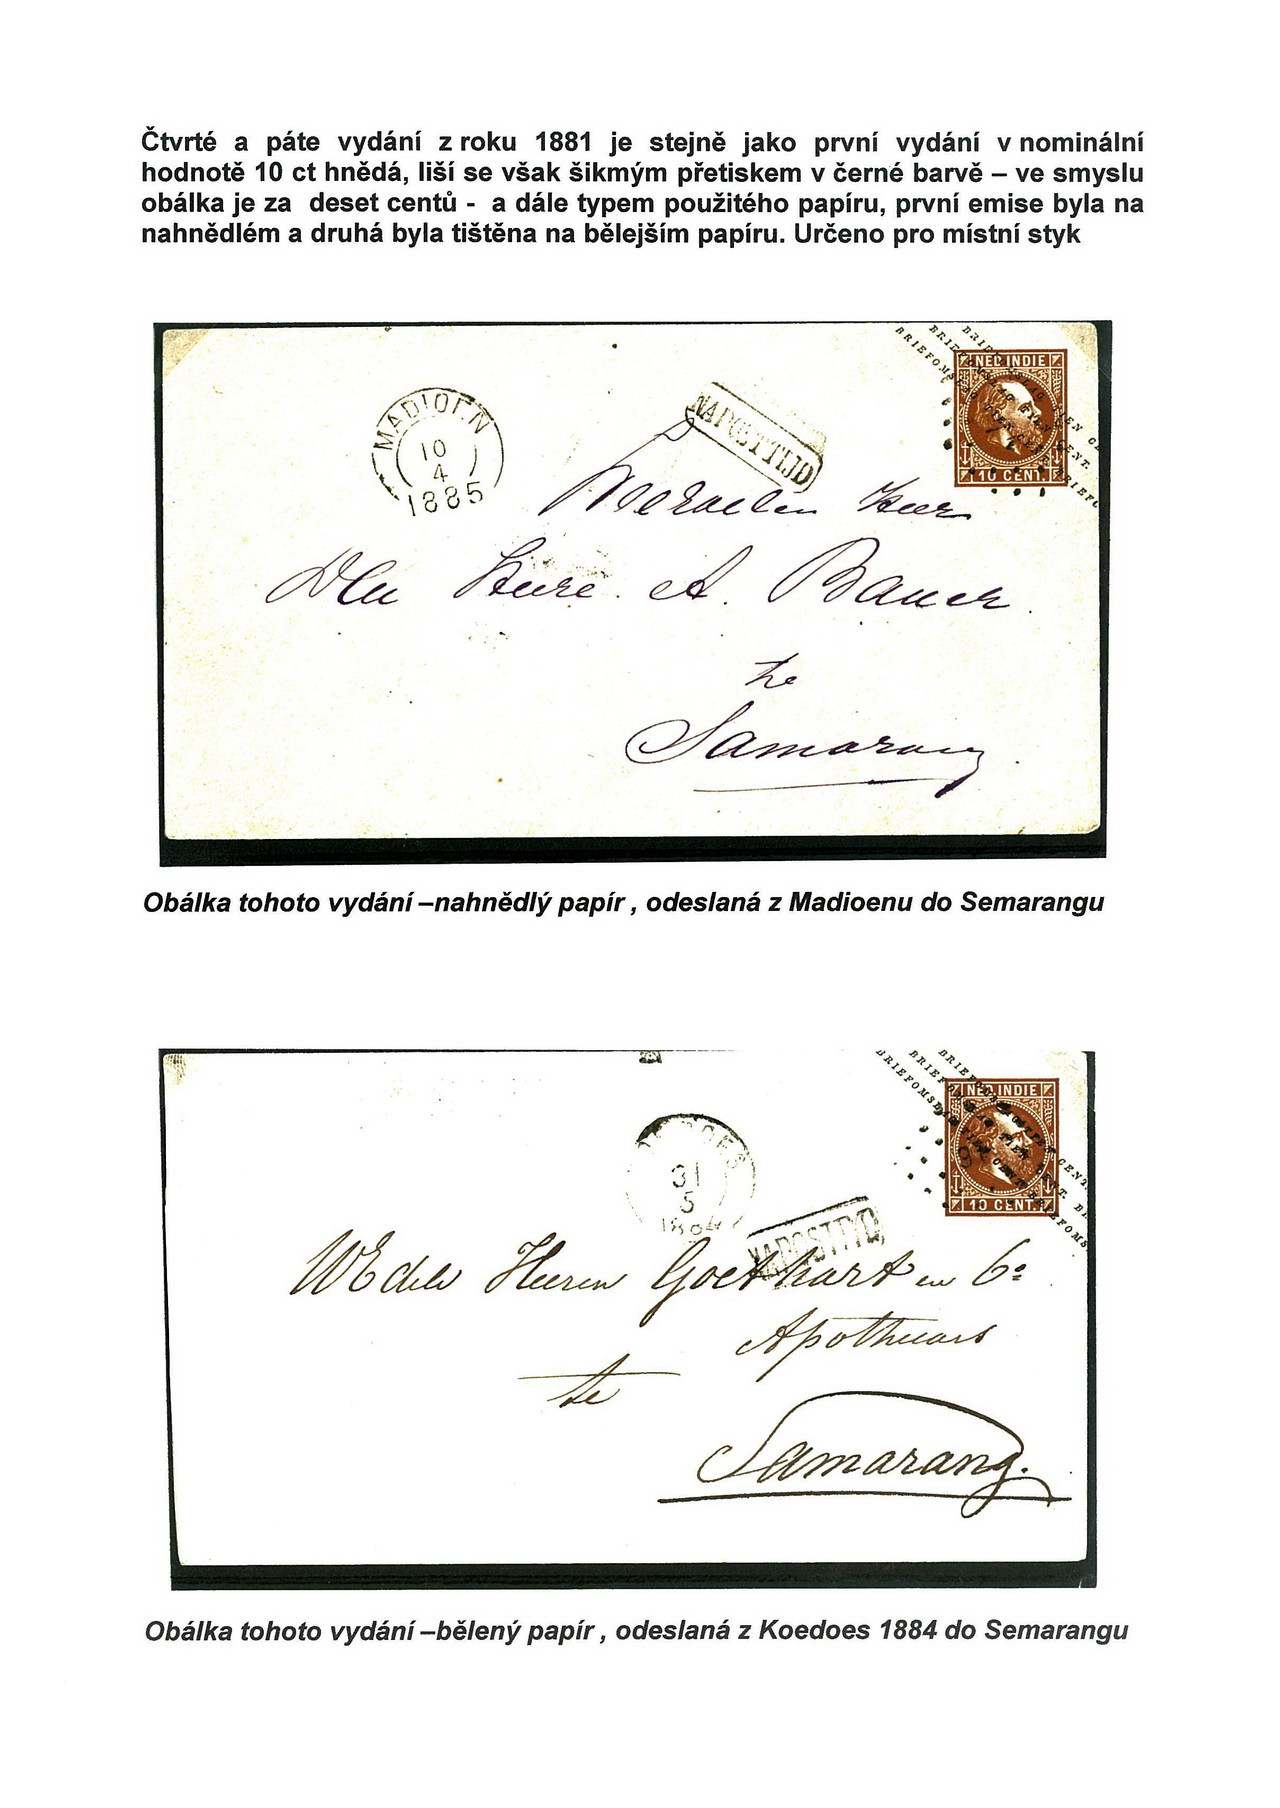 Čtvrté a páte vydání z roku 1881 je stejně jako první vydání v nominální
hodnotě 10 ct hnědá, liší se však šikmým přetiskem v černé barvě – ve smyslu
obálka je za deset centů - a dále typem použitého papíru, první emise byla na
nahnědlém a druhá byla tištěna na bělejším papíru. Určeno pro místní styk
NED. INDIE
10 CENT.
MADIOEN
10
4
1885
NAPOSTTIJD
Heer
A. Bauer
te
Samarang
Obálka tohoto vydání –nahnědlý papír , odeslaná z Madioenu do Semarangu
BRIEFOMSLAG TIEN CENT.
NED. INDIE
10 CENT.
31
5
1884
NAPOSTTYD
WEdele Heeren Goethart en Co
te
Samarang.
Obálka tohoto vydání –bělený papír , odeslaná z Koedoes 1884 do Semarangu